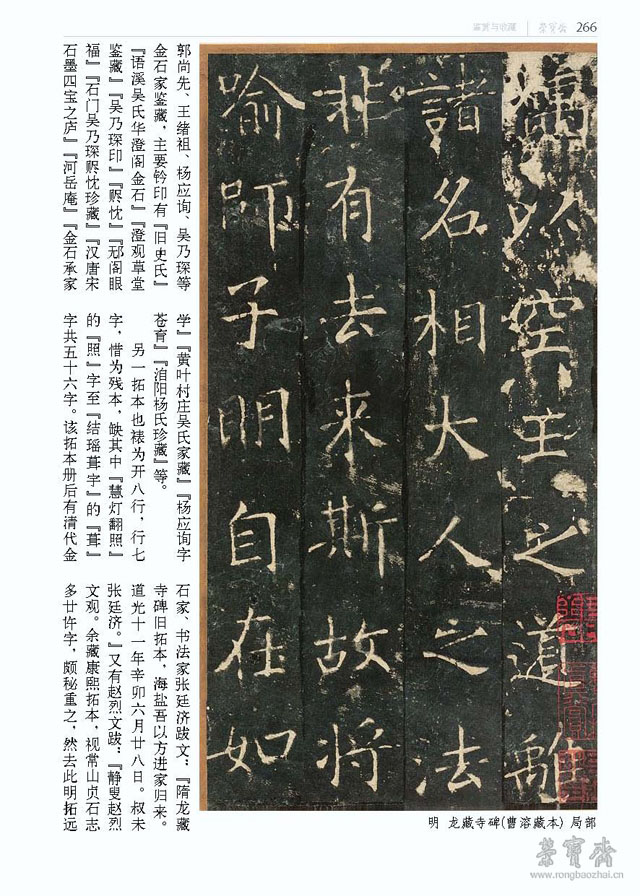 鉴赏与收藏 荣宝斋 266
以空王之道離
諸名相大人之法
非有去来斯故将
喻師子明自在如
明 龙藏寺碑(曹溶藏本) 局部
郭尚先、王绪祖、杨应询、吴乃琛等
金石家鉴藏，主要钤印有『旧史氏』
『语溪吴氏华澄阁金石』『澄观草堂
鉴藏』『吴乃琛印』『赆忱』『邧阁眼
福』『石门吴乃琛赆忱珍藏』『汉唐宋
石墨四宝之庐』『河岳庵』『金石承家
学』『黄叶村庄吴氏家藏』『杨应询字
苍育』『洎阳杨氏珍藏』等。
另一拓本也裱为开八行，行七
字，惜为残本，缺其中『慧灯翻照』
的『照』字至『结瑶葺宇』的『葺』
字共五十六字。该拓本册后有清代金
石家、书法家张廷济跋文：『隋龙藏
寺碑旧拓本，海盐吾以方进家归来。
道光十一年辛卯六月廿八日。叔未
张廷济。』又有赵烈文跋：『静叟赵烈
文观。余藏康熙拓本，视常山贞石志
多廿许字，颇秘重之，然去此明拓远
荣宝斋
www.rongbaozhai.cn